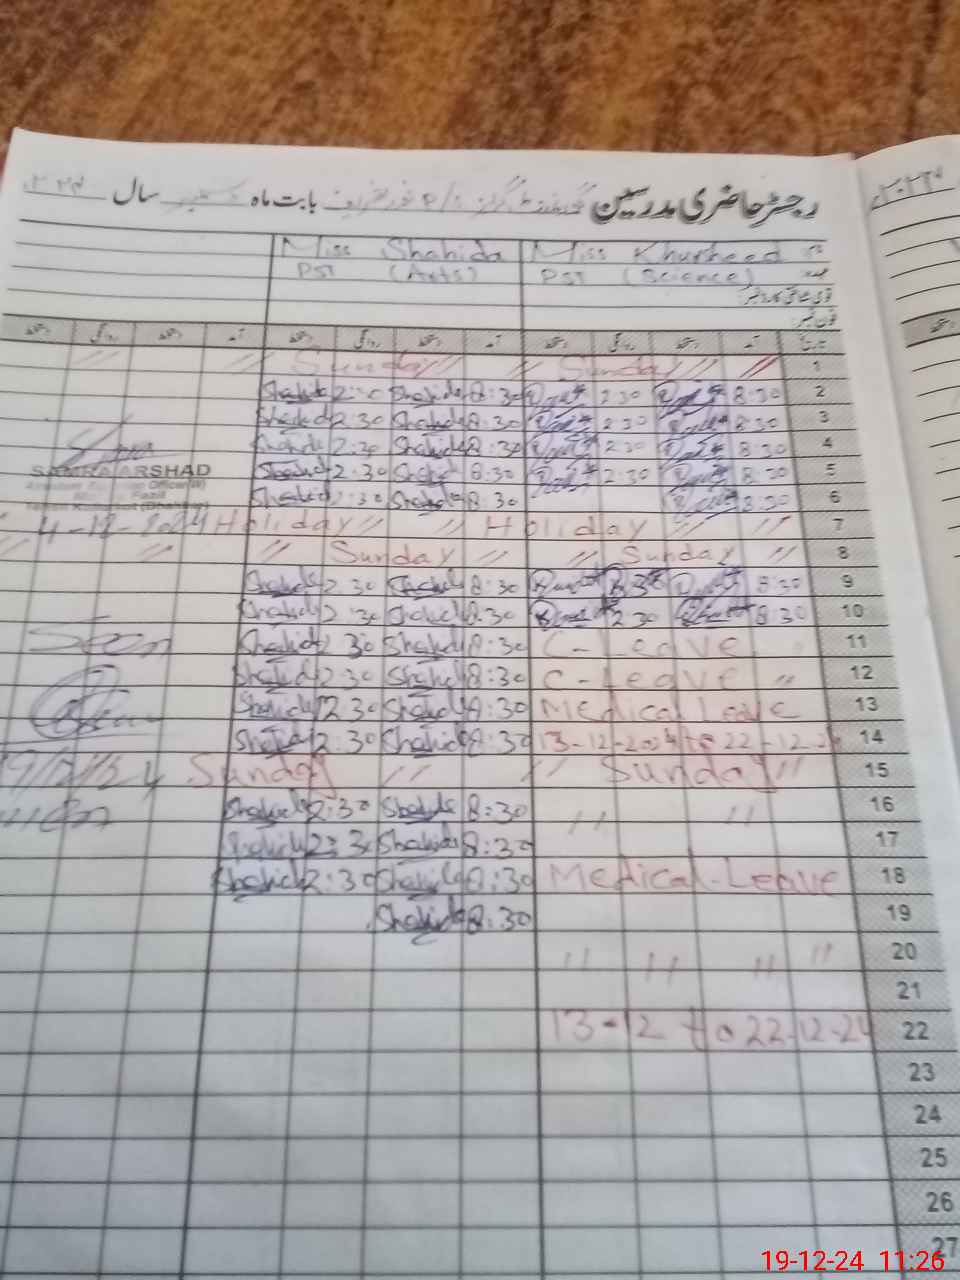 رجسٹر حاضری مدرسین گورنمنٹ گرلز بابت ماہ دسمبر سال ۲۰۲۴
Miss Shahida Miss Khursheed نام
PST (Arts) PST (Science) عہدہ
قومی شناختی کارڈ نمبر:
فون نمبر:
دستخط روانگی دستخط آمد دستخط روانگی دستخط آمد دستخط روانگی دستخط آمد تاریخ
〃 〃 〃 Sunday 〃 〃 Sunday 〃 〃 1
Shahida 2:30 Shahida 8:30 2:30 8:30 2
Shahida 2:30 Shahida 8:30 2:30 8:30 3
Shahida 2:30 Shahida 8:30 2:30 8:30 4
SAMRA ARSHAD Shahida 2:30 Shahida 8:30 2:30 8:30 5
Shahida 2:30 Shahida 8:30 8:30 6
4-12-2024 Holiday 〃 〃 Holiday 〃 〃 7
〃 〃 〃 Sunday 〃 〃 Sunday 〃 8
Shahida 2:30 Shahida 8:30 8:30 9
Shahida 2:30 Shahida 8:30 2:30 8:30 10
Seen Shahida 2:30 Shahida 8:30 C-Leave 11
Shahida 2:30 Shahida 8:30 C-Leave 〃 12
Shahida 2:30 Shahida 8:30 Medical Leave 13
Shahida 2:30 Shahida 8:30 13-12-2024 to 22-12-24 14
Sunday 〃 〃 Sunday 〃 15
Shahida 2:30 Shahida 8:30 〃 〃 16
Shahida 2:30 Shahida 8:30 17
Shahida 2:30 Shahida 8:30 Medical-Leave 18
Shahida 8:30 19
〃 〃 〃 〃 20
21
13-12 to 22-12-24 22
23
24
25
26
27
19-12-24 11:26